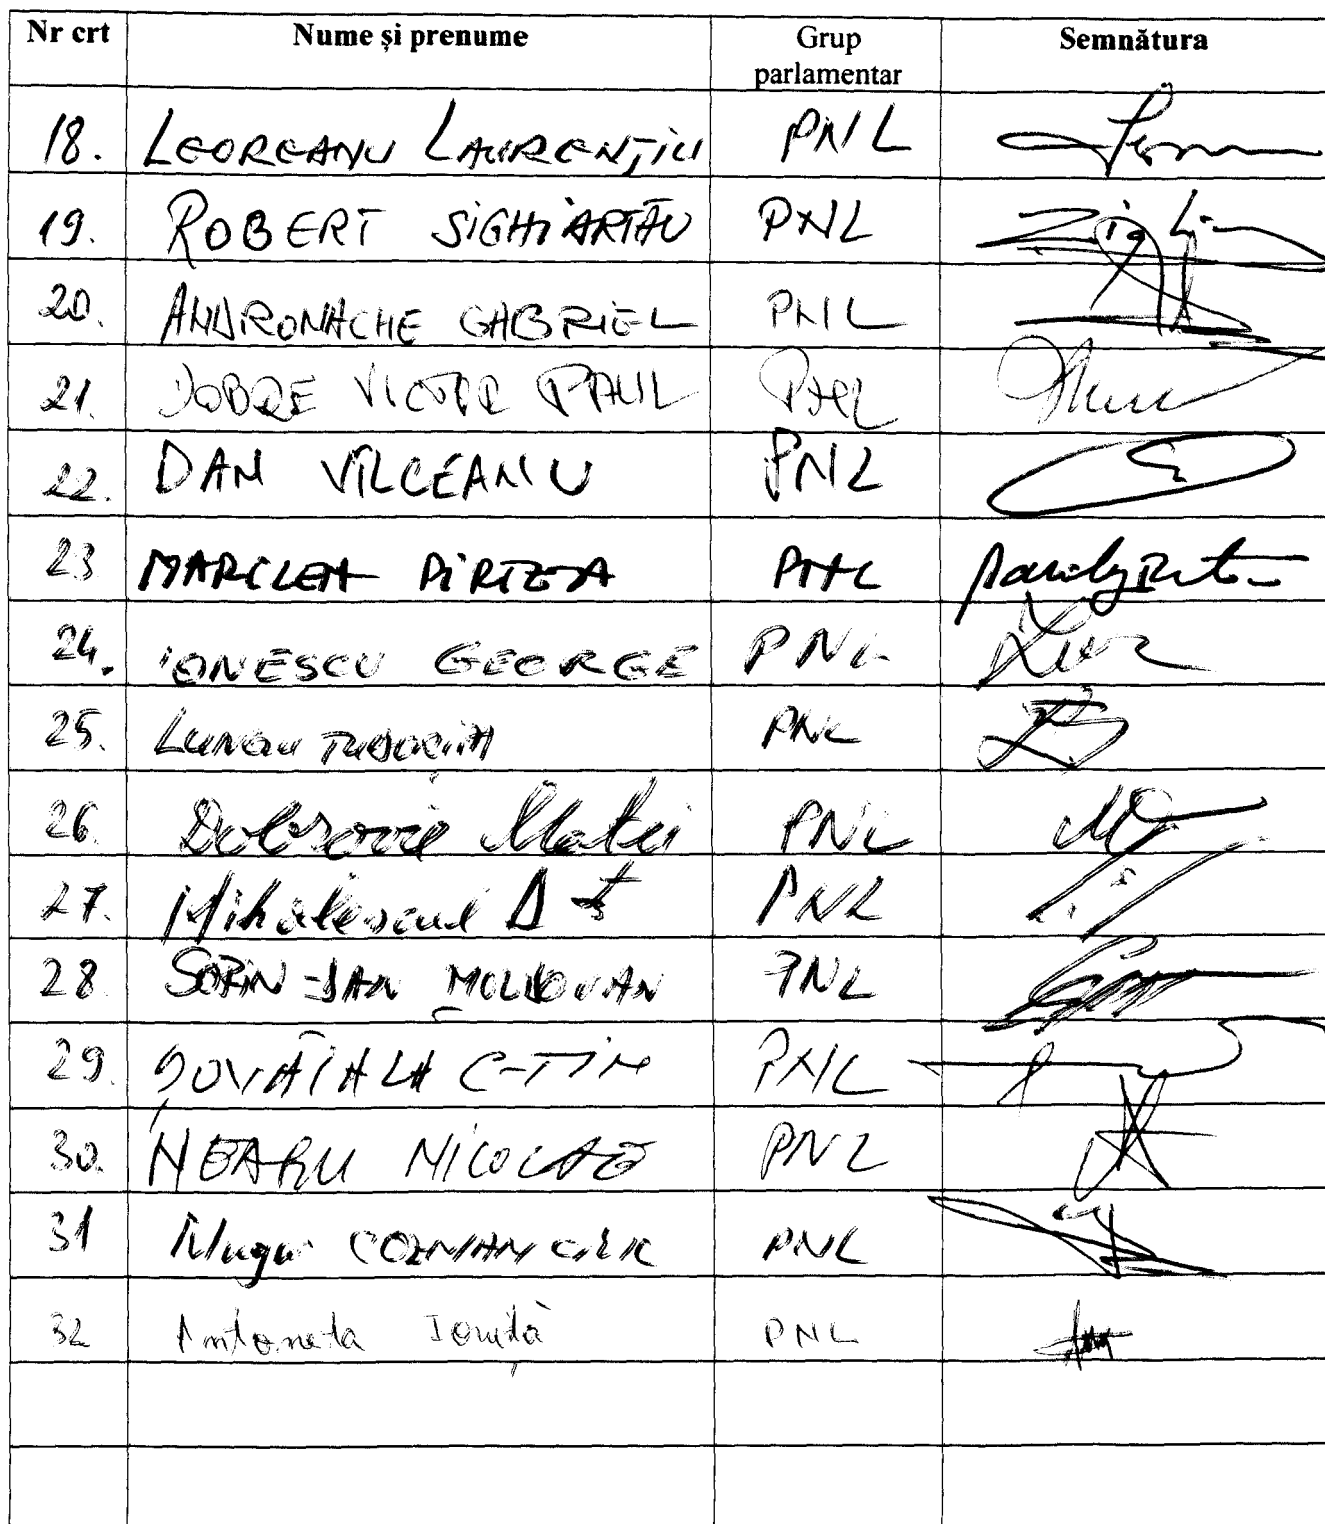 Nr crt Nume și prenume Grup parlamentar Semnătura
18. LEOREANU LAURENȚIU PNL
19. ROBERT SIGHIARTĂU PNL
20. ANDRONACHE GABRIEL PNL
21. DOBRE VICTOR PAUL PNL
22. DAN VÎLCEANU PNL
23 PNL
24. IONESCU GEORGE PNL
25. LUNGU TUDORIȚA PNL
26. Dobrovie Matei PNL
27. PNL
28. SORIN-DAN MOLDOVAN PNL
29. ȘOVĂIALĂ C-TIN PNL
30. NEAGU NICOLAE PNL
31 Mugur COZMANCIUC PNL
32 Antoneta Ioniță PNL